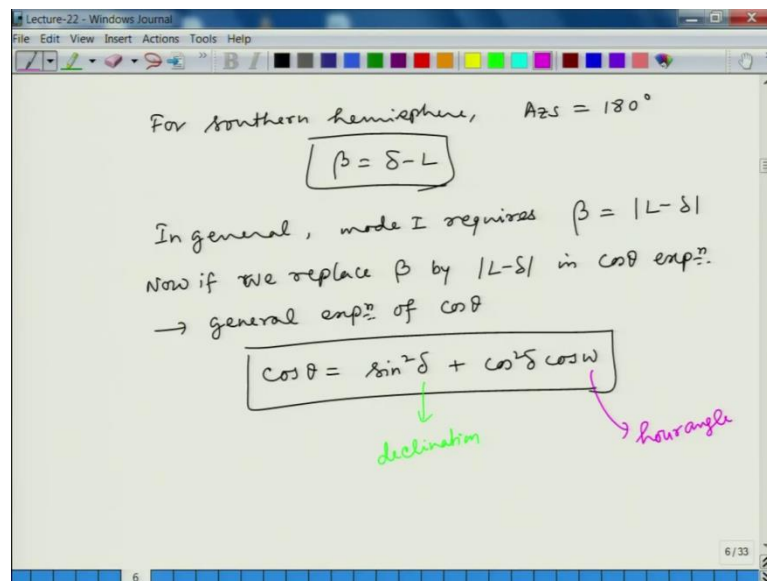 Lecture-22 - Windows Journal
File Edit View Insert Actions Tools Help
B I
For southern hemisphere, Azs = 180°
β = δ-L
In general, mode I requires β = |L-δ|
Now if we replace β by |L-δ| in cosθ expⁿ.
→ general expⁿ of cosθ
cosθ = sin²δ + cos²δ cosω
declination
hour angle
6/33
6